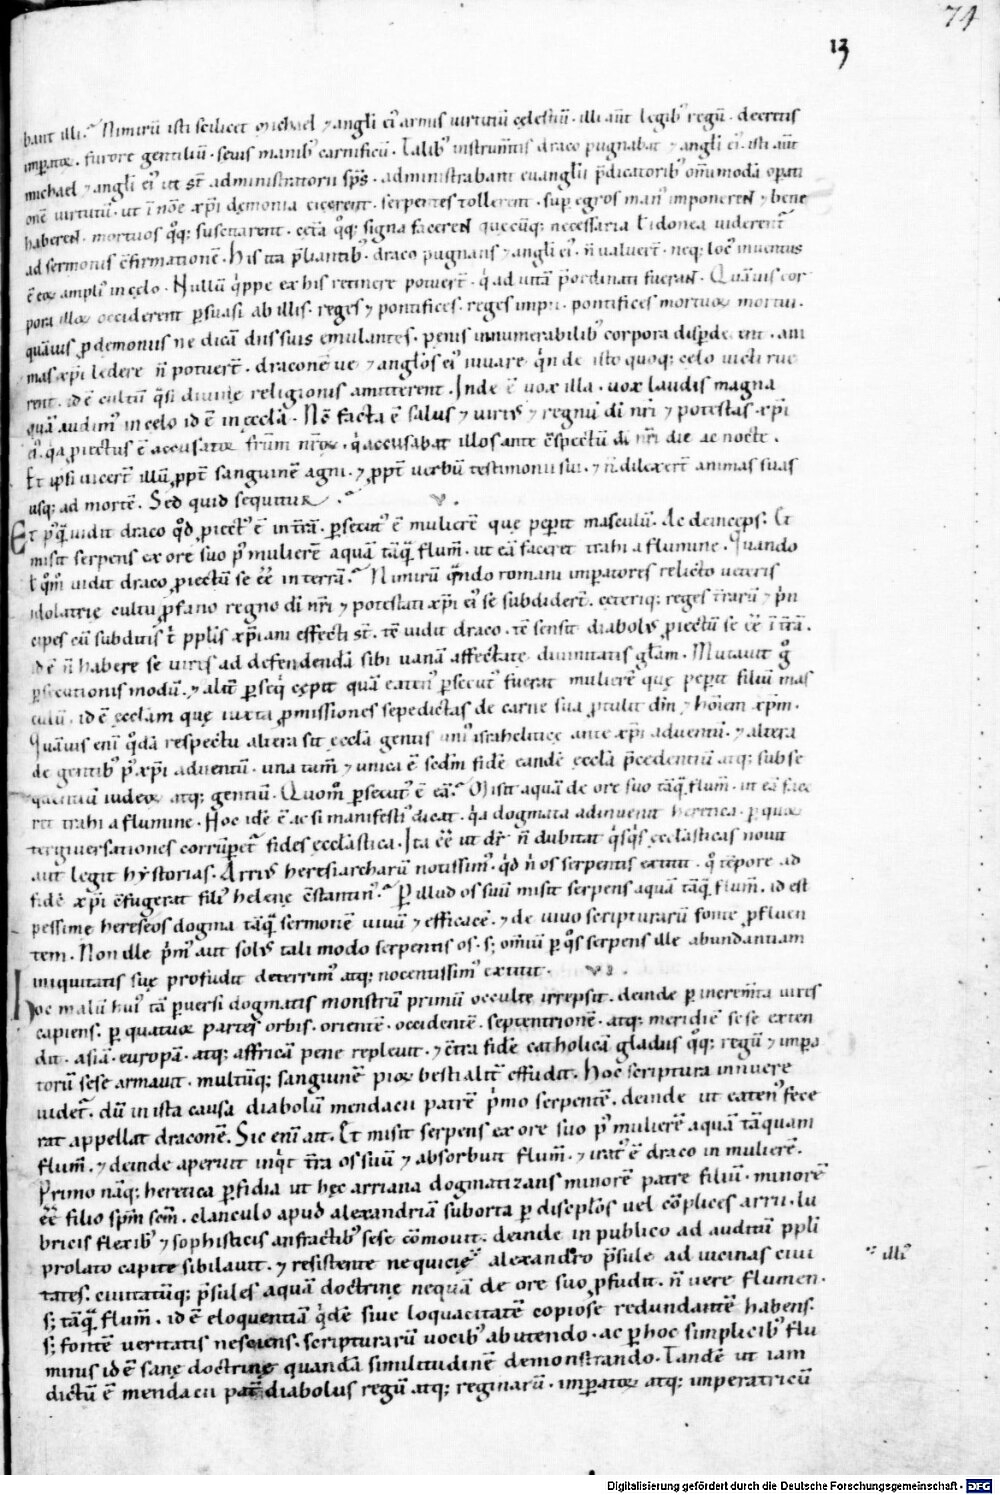 74
13
bant illi. Nimirū isti scilicet michael ⁊ angli ei᾽ armis virtutū cęlestiū. illi aūt legib᾽ regū. decretis
imperatoꝝ. furore gentiliū. sevis manib᾽ carnificū. Talib᾽ instrum̄tis draco pugnabat ⁊ angli ei᾽. isti aūt
michael ⁊ angli ei᾽ ut st̄ administratorii sp̄s. administrabant euanglii p̄dicatorib᾽ om̄imodā opati
onē virtutū. ut ī nōe xp̄i dęmonia eicerent. serpentes tollerent. sup egros man᾽ imponerent ⁊ bene
haberent. mortuos qͦq; suscitarent. cęta qͦq; signa facerent quecūq; necessaria ł idonea viderent᾽
ad sermonis ɔ̄firmationē. His ita p̄liantib᾽. draco pugnans ⁊ angli ei᾽. n̄ valuert̄. neq; loc᾽ inventus
ē eoꝝ ampli᾽ in cęlo. Nullū q̍ppe ex his retinere potuert̄. q̍ ad vitā p̄ordinati fuerant. Quāuis cor
pora illoꝝ occiderent p̱suasi ab illis. reges ⁊ pontifices. reges impii. pontifices mortuoꝝ mortui.
quāuis ꝓ demoniis ne dicā diis suis emulantes. penis innumerabilib᾽ corpora disp̱de rent. ani
mas xp̄i ledere n̄ potuert̄. draconē ue ⁊ anglos ei᾽ iuuare q̍n de isto quoq; cęlo victi rue
rent. id ē cultū q̄si divinę religionis amitterent. Inde ē vox illa. vox laudis magna
quā audim᾽ in cęlo id ē in ęccła. Nc̄ facta ē salus ⁊ virt᾽ ⁊ regnū di nr̄i ⁊ potestas xp̄i
ei᾽. q̍a ꝓiectus ē accusatoꝛ frm̄ nr̄oꝝ. q̍ accusabat illos ante ɔspectū di nr̄i die ac nocte.
Et ipsi vicert̄ illū ꝓpt̄ sanguinē agni. ⁊ ꝓpt̄ verbū testimonii sui. ⁊ n̄ dilexert̄ animas suas
usq; ad mortē. Sed quid sequitur. v.
Et p᾽q̄ vidit draco qͦd ꝓiect᾽ ē in t̄rā. p̱secut᾽ ē mulierē que pep̱it masculū. Ac deinceps. Et
misit serpens ex ore suo p᾽ mulierē aquā tāq̄ flum̄. ut eā faceret trahi a flumine. Quando
ł qͦm vidit draco ꝓiectū se eē in terrā. Nimirū q̄ndo romani imp̱atores relicto veteris
idolatrię cultu ꝓfano regno di nr̄i ⁊ potestati xp̄i ei᾽ se subdidert̄. cęteriq; reges t̄rarū ⁊ p̍n
cipes cū subditis s̄ pplis xp̄iani effecti st̄. tc̄ vidit draco. tc̄ sensit diabol᾽ ꝓiectū se eē ī t̄rā.
id ē n̄ habere se vires ad defendendā sibi vanā affectate divinitatis glām. Mutauit g̊
p̱secutionis modū. ⁊ alit̄ p̱seq̍ cępit quā eaten᾽ p̱secut᾽ fuerat mulierē quę pep̱it filiū mas
culū. id ē ęcclam quę iuxta ꝓmissiones sepedictas de carne sua ꝓtulit dm̄ ⁊ hoīem xp̄m.
Quāuis enī qͦdā respectu altera sit ęccła gentis uni᾽ israhelitice ante xp̄i adventū. ⁊ altera
de gentib᾽ p᾽ xp̄i adventū. una tam̄ ⁊ unica ē sedm̄ fidē eandē ęccła p̄cedentiū atq; subse
quentiū iudeoꝝ atq; gentiū. Quom̊ p̱secut᾽ ē eā. Misit aquā de ore suo tāq̄ flum̄. ut eā face
ret trahi a flumine. Hoc idē ē ac si manifesti᾽ dicat. q̍a dogmata adinvenit heretica. p̱ quoꝝ
tergiversationes corrūp̱et᾽ fides ęccłastica. Ita eē ut dr̄ n̄ dubitat q̍sq̍s ęccłasticas novit
aut legit hystorias. Arri᾽ heresiarcharū notissim᾽. q̍d n̍ os serpentis extitit. qͦ tēpore ad
fidē xp̄i ɔfugerat fili᾽ helenę ɔ̄stantin᾽. P̱ illud os suū misit serpens aquā tāq̄ flum̄. id est
pessime hereseos dogma tāq̄ sermonē vivū ⁊ efficacē. ⁊ de vivo scripturarū fonte ꝓfluen
tem. Non ille p̍m᾽ aut sol᾽ tali modo serpentis os. s; om̄iū p̱ qͦs serpens ille abundantiam
iniquitatis suę profudit deterrim᾽ atq; nocentissim᾽ extitit. vi.
Hoc malū hui᾽ tā p̱versi dogmatis monstrū primū occulte irrepsit. deinde p̱ increm̄ta vires
capiens. p̱ quatuoꝛ partes orbis. orientē. occidentē. septentrionē. atq; meridiē sese exten
dit. asiā. europā. atq; affricā pene replevit. ⁊ ɔ̄tra fidē catholicā gladios qͦq; regū ⁊ imp̱a
torū sese armavit. multūq; sanguinē pioꝝ bestialit̄ effudit. Hoc scriptura innuere
videt᾽. dū in ista causa diabolū mendacii patrē p̍mo serpentē. deinde ut eaten᾽ fece
rat appellat draconē. Sic enī ait. Et misit serpens ex ore suo p᾽ mulierē aquā tāquam
flum̄. ⁊ deinde aperuit inq̍t t̄ra os suū ⁊ absorbuit flum̄. ⁊ irat᾽ ē draco in mulierē.
Primo nāq; heretica p̱fidia ut hęc arriana dogmatizans minorē patre filiū. minorē
eē filio spm̄ scm̄. clanculo apud alexandriā suborta p̱ disciplos vel cōplices arrii. lu
bricis flexib᾽ ⁊ sophisticis anfractib᾽ sese cōmovit. deinde in publico ad auditū ppli
prolato capite sibilavit. ⁊ resistente nequicię alexandro p̄sule ad vicinas civi
tates. civitatūq; p̄sules aquā doctrinę nequā de ore suo ꝓfudit. n̄ vere flumen.
s; tāq̄ flum̄. id ē eloquentiā q̍dē sive loquacitatē copiose redundantē habens.
s; fontē veritatis nesciens. scripturarū vocib᾽ abutendo. ac p̱ hoc simplicib᾽ flu
minis id ē sanę doctrinę quandā similitudinē demonstrando. Tandē ut iam
dictū ē mendacii pat̄ diabolus regū atq; reginarū. imp̱atoꝝ atq; imperatricū
illi᾽
Digitalisierung gefördert durch die Deutsche Forschungsgemeinschaft - DFG